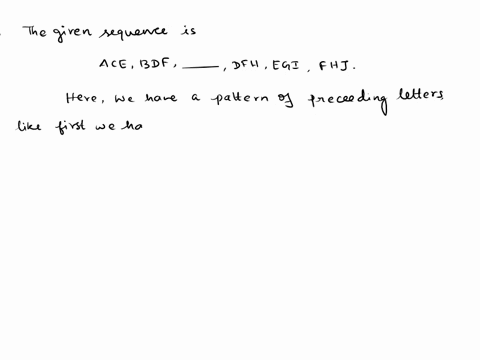 The given sequence is
ACE, BDF, ____, DFH, EGI, FHJ.
Here, we have a pattern of preceeding letters
like first we ha